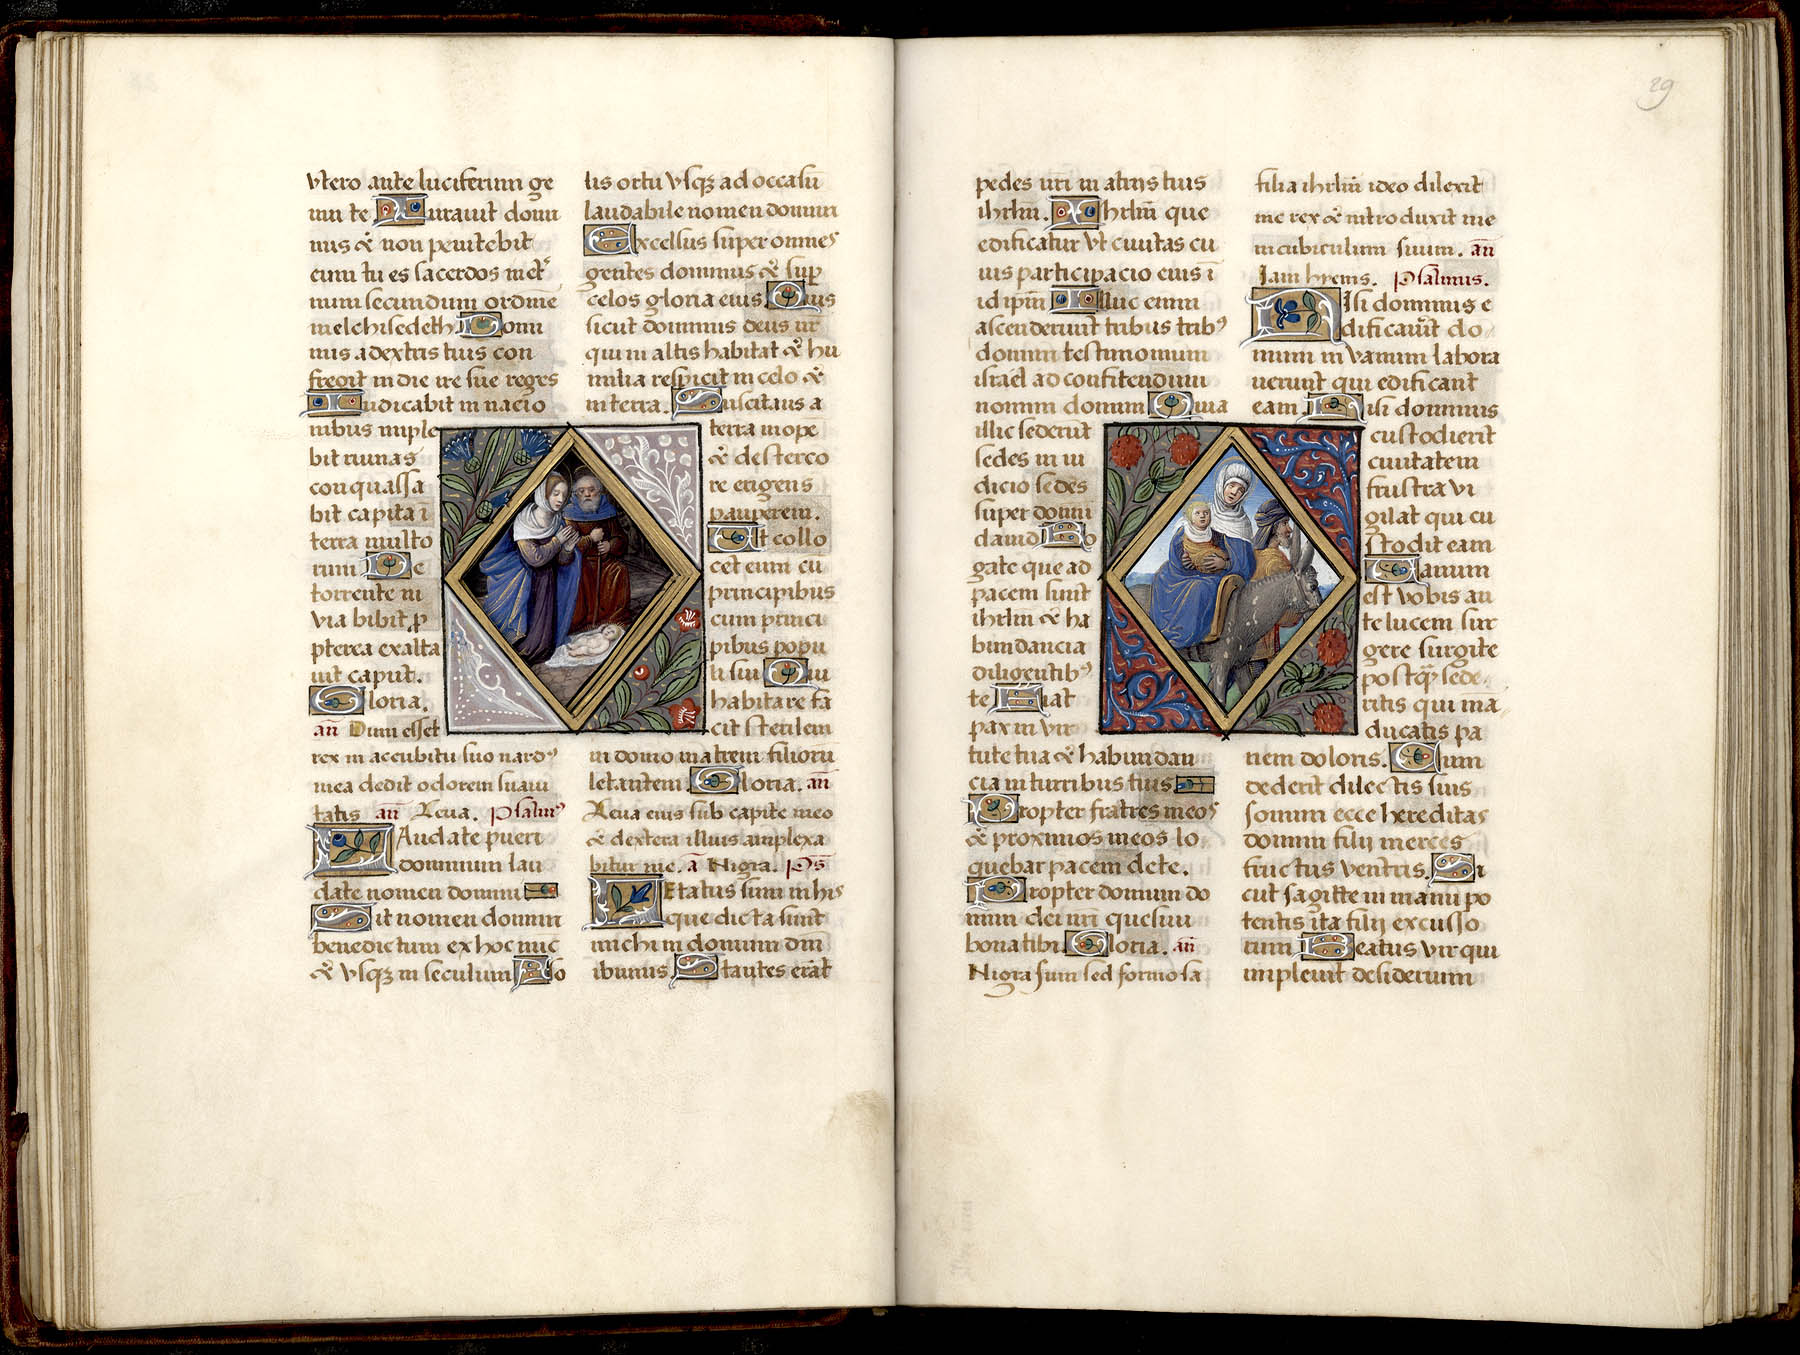 29
vtero ante luciferum ge
nui te Iurauit domi
nus & non penitebit
eum tu es sacerdos in et̄
num secundum ordinē
melchisedech Domi
nus adextris tuis con
fregit in die ire sue reges
Iudicabit in nacio
nibus imple
bit ruinas
conquassa
bit capita ī
terra multo
rum De
torrente in
via bibit p
pterea exalta
uit caput.
Gloria.
añ Dum esset
rex in accubitu suo nardꝰ
mea dedit odorem suaui
tatis añ Leua. Psalmꝰ
LAudate pueri
dominum lau
date nomen domini
Sit nomen domini
benedictum ex hoc nūc
& vsqꝫ in seculum A so
lis ortū vsqꝫ ad occasū
laudabile nomen domini
Excelsus super omnes
gentes dominus & sup
celos gloria eius Quis
sicut dominus deus nr̄
qui in altis habitat & hu
milia respicit in celo &
in terra. Suscitans a
terra inope
& de sterco
re erigens
pauperem.
Vt collo
cet eum cū
principibus
cum princi
pibus popu
li sui Qui
habitare fa
cit sterilem
in domo matrem filiorū
letantem Gloria. añ
Leua eius sub capite meo
& dextera illius amplexa
bitur me. ā Nigra. Ps̄
LEtatus sum in his
que dicta sunt
michi in domum dn̄i
ibimus Stantes erāt
pedes nr̄i in atrijs tuis
ihrlm̄. Ihrlm̄ que
edificatur vt ciuitas cu
ius participacio eius ī
id ipm̄ Illuc enim
ascenderunt tribus tribꝰ
domini testimonium
israel ad confitendum
nomini domini Quia
illic sederūt
sedes in iu
dicio sedes
super domū
dauid Ro
gate que ad
pacem sunt
ihrlm̄ & ha
bundancia
diligentibꝰ
te Fiat
pax in vir
tute tua & habundan
cia in turribus tuis
Propter fratres meos
& proximos meos lo
quebar pacem de te.
Propter domum do
mini dei nr̄i quesiui
bona tibi Gloria. añ
Nigra sum sed formosa
filia ihrlm̄ ideo dilexit
me rex & introduxit me
in cubiculum suum. añ
Iam hyems. Psalmus.
NIsi dominus e
dificauīt do
mum in vanum labora
uerunt qui edificant
eam Nisi dominus
custodierit
ciuitatem
frustra vi
gilat qui cu
stodit eam
Vanum
est vobis an
te lucem sur
gere surgite
postq̄ sede
ritis qui mā
ducatis pa
nem doloris. Cum
dederit dilectis suis
somnū ecce hereditas
domini filij merces
fructus ventris. Si
cut sagitte in manu po
tentis ita filij excusso
rum Beatus vir qui
impleuit desiderium